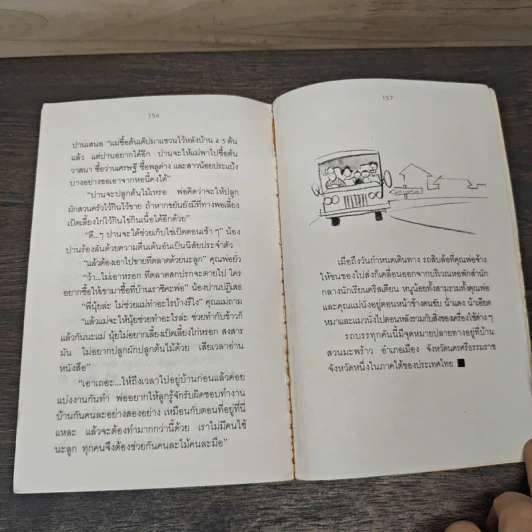 156
ปานเสนอ "แม่ซื้อต้นเตีปมาแขวนไว้หลังบ้าน 4 5 ต้น
แล้ว แต่ปานอยากได้อีก ปานจะให้แม่พาไปซื้อต้น
วาสนา ซื้อว่านเศรษฐี ซื้อพลูด่าง และสาวน้อยประแป้ง
บางอย่างขอเอาจากหอนี้คงได้"
"ปานจะปลูกต้นไม้เหรอ พ่อคิดว่าจะให้ปลูก
ผักสวนครัวไว้กินไว้ขาย ถ้าหากขยันยังมีที่ทางพอเลี้ยง
เป็ดเลี้ยงไก่ไว้กินไข่กินเนื้อได้อีกด้วย"
"ดี...ๆ ปานจะได้ช่วยเก็บไข่เป็ดตอนเช้า ๆ" น้อง
ปานร้องลั่นด้วยความตื่นเต้นอันเป็นนิสัยประจำตัว
"แล้วต้องเอาไปขายที่ตลาดด้วยนะลูก" คุณพ่อยั่ว
"ว้า...ไม่เอาหรอก ที่ตลาดสกปรกจะตายไป ใคร
อยากซื้อให้เขามาซื้อที่บ้านเราซิคะพ่อ" น้องปานปฏิเสธ
"พี่นุ้ยล่ะ ไม่ช่วยแม่ทำอะไรบ้างรึไง" คุณแม่ถาม
"แล้วแม่จะให้นุ้ยช่วยทำอะไรล่ะ ช่วยทำกับข้าวก็
แล้วกันนะแม่ นุ้ยไม่อยากเลี้ยงเป็ดเลี้ยงไก่หรอก สงสาร
มัน ไม่อยากปลูกผักปลูกต้นไม้ด้วย เสียเวลาอ่าน
หนังสือ"
"เอาเถอะ...ให้ถึงเวลาไปอยู่บ้านก่อนแล้วค่อย
แบ่งงานกันทำ พ่ออยากให้ลูกรู้จักรับผิดชอบทำงาน
บ้านกันคนละอย่างสองอย่าง เหมือนกับตอนที่อยู่ที่นี่
แหละ แล้วจะต้องทำมากกว่านี้ด้วย เราไม่มีคนใช้
นะลูก ทุกคนจึงต้องช่วยกันคนละไม้คนละมือ"
157
เมื่อถึงวันกำหนดเดินทาง รถสิบล้อที่คุณพ่อจ้าง
ให้ขนของไปส่งก็เคลื่อนออกจากบริเวณหอพักสำนัก
กลางนักเรียนคริสเตียน หนูน้อยทั้งสามรวมทั้งคุณพ่อ
และคุณแม่นั่งอยู่ตอนหน้าข้างคนขับ น้าแดง น้าเอียด
หมาและแมวนั่งไปตอนหลังรวมกับสิ่งของเครื่องใช้ต่างๆ
รถบรรทุกคันนี้มีจุดหมายปลายทางอยู่ที่บ้าน
สวนมะพร้าว อำเภอเมือง จังหวัดนครศรีธรรมราช
จังหวัดหนึ่งในภาคใต้ของประเทศไทย